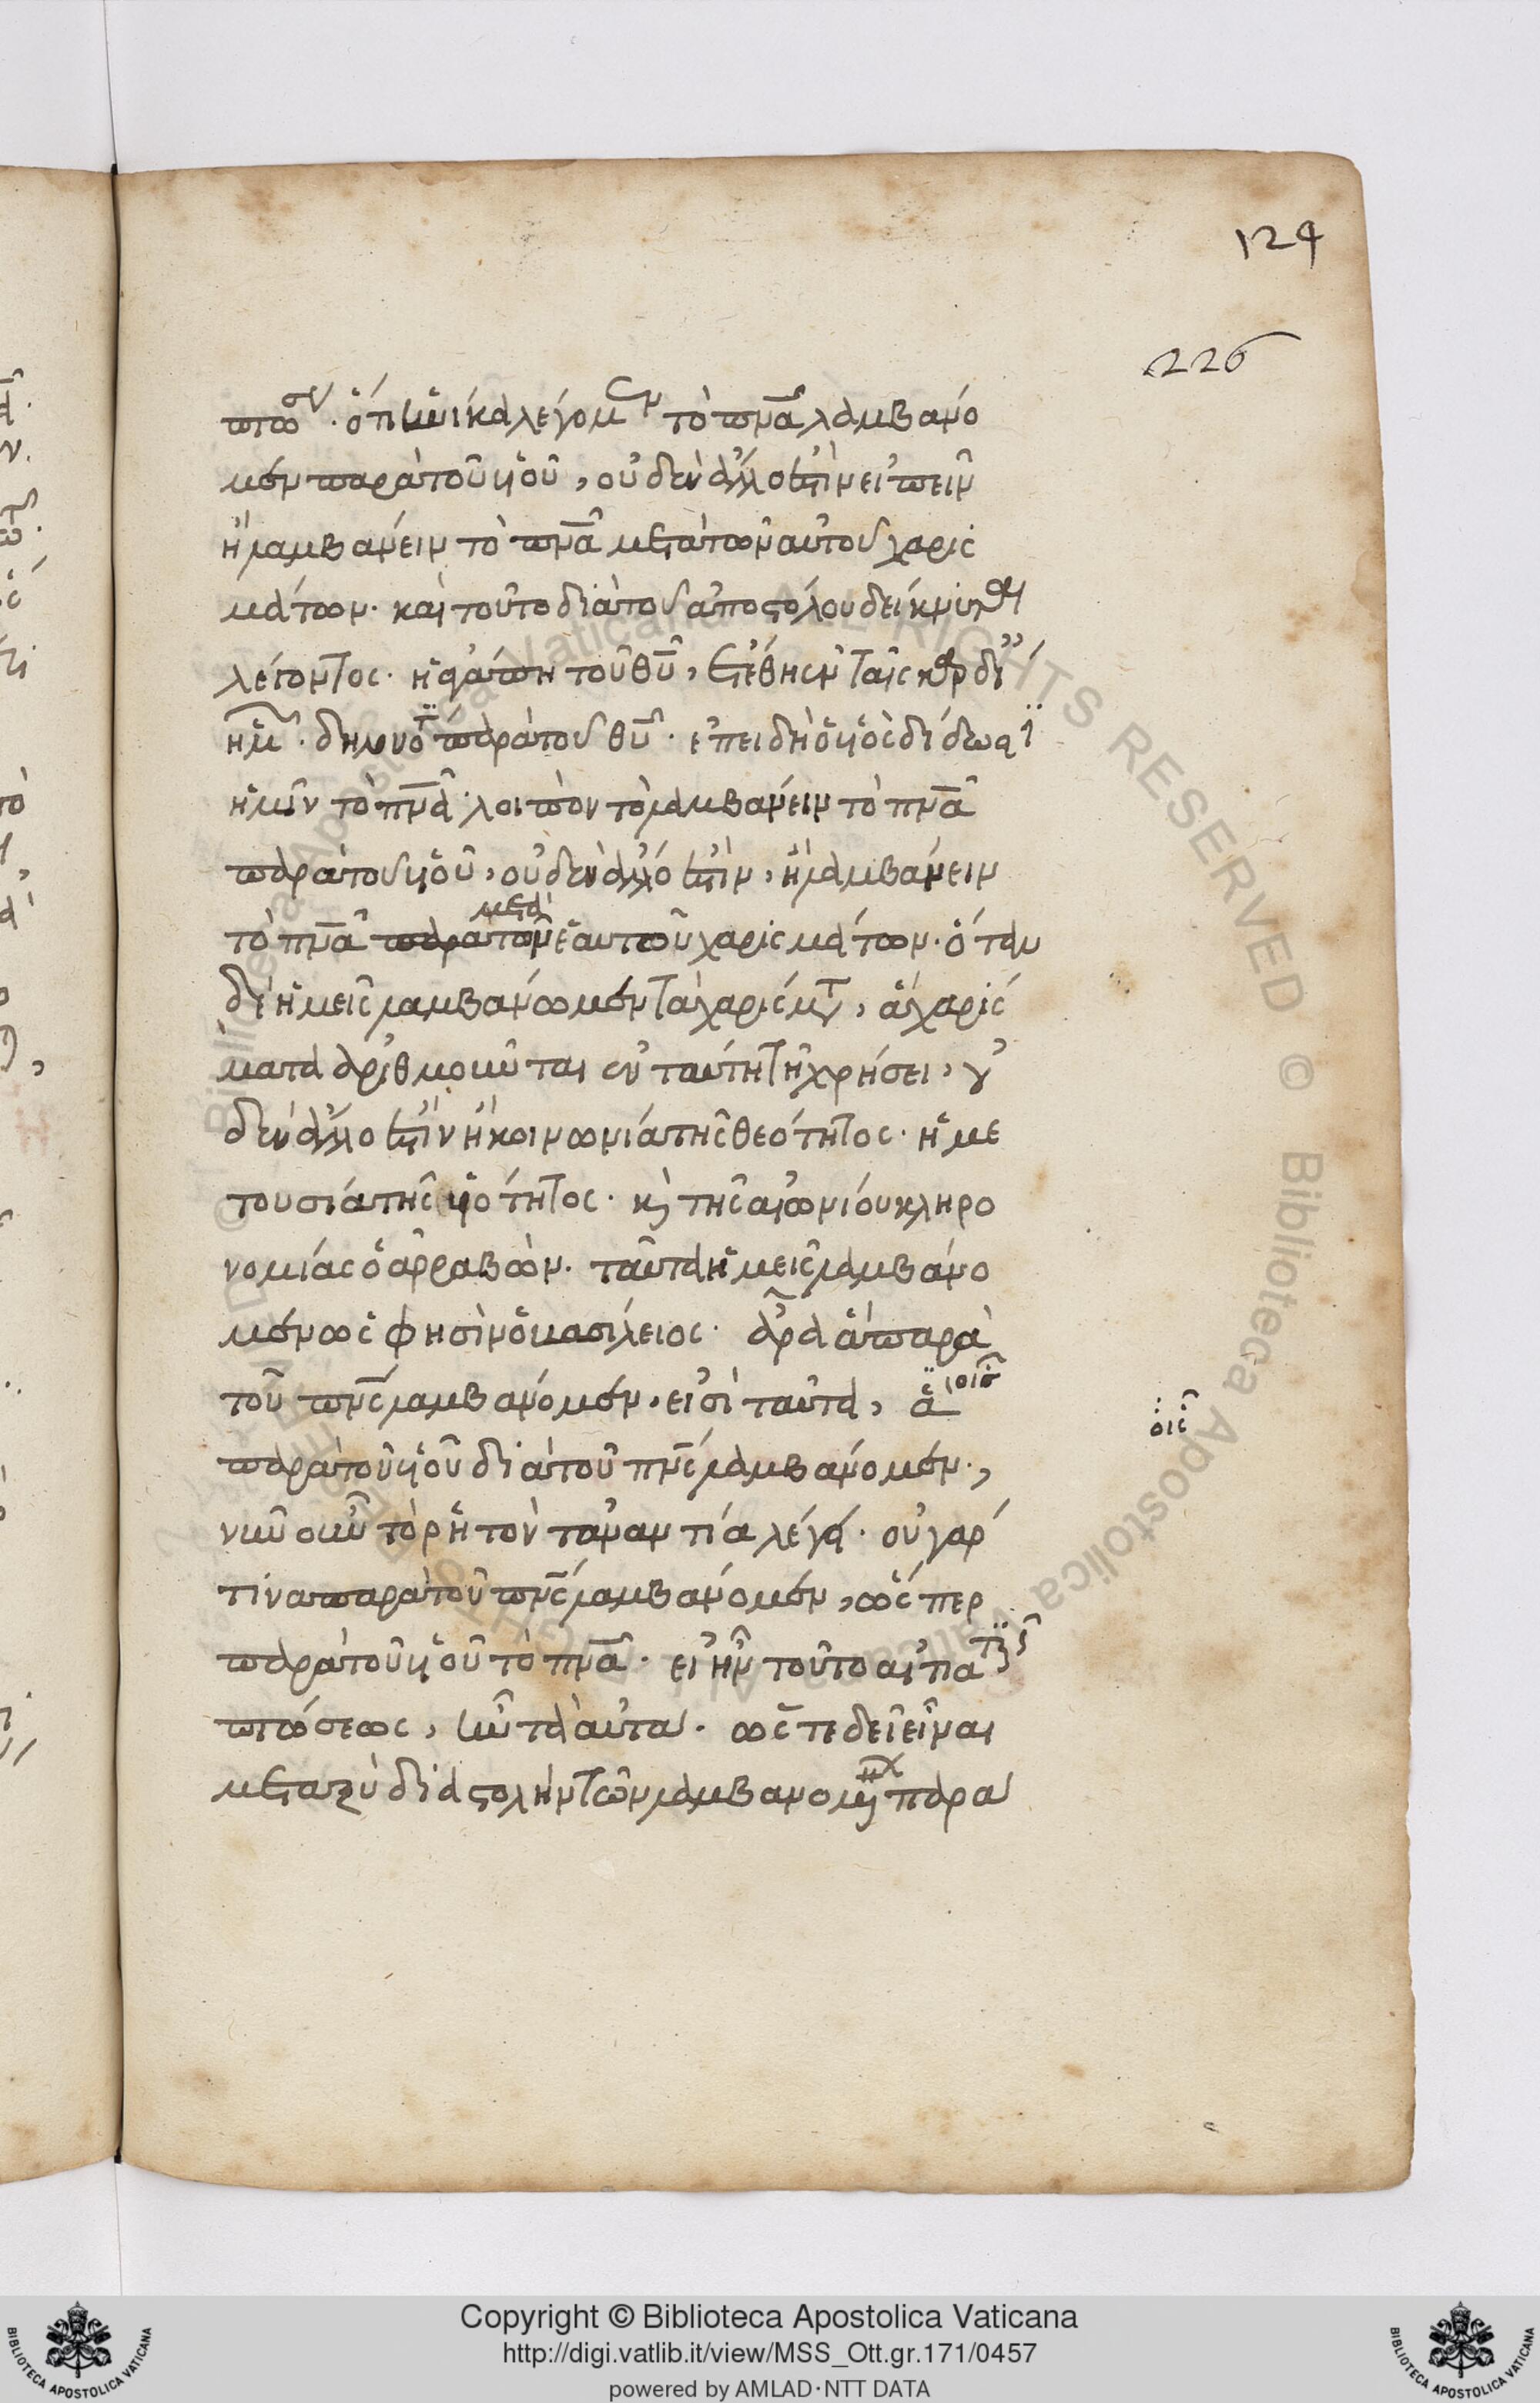 124
226
πτωσιν. ὅτι ἡνίκα λέγομεν τὸ πνᾶ λαμβάνο
μεν παρὰ τοῦ υἱοῦ, οὐδὲν ἄλλο ἐστὶν εἰπεῖν
ἢ λαμβάνειν τὸ πνᾶ μετὰ τῶν αὐτοῦ χαρισ
μάτων. καὶ τοῦτο διὰ τοῦ ἀποστόλου δείκνυται
λέγοντος. ἡ ἀγάπη τοῦ θῦ, ἐτέθη ἐν ταῖς καρδίαις
ἡμῶν. δηλονότι παρὰ τοῦ θῦ. ἐπειδὴ ὁ υἱὸς δίδωσι
ἡμῖν τὸ πνᾶ. λοιπὸν τὸ λαμβάνειν τὸ πνᾶ
παρὰ τοῦ υἱοῦ, οὐδὲν ἄλλό ἐστιν, ἢ λαμβάνειν
μετὰ
τὸ πνᾶ παρὰ τῶν ἑαυτοῦ χαρισμάτων. ὅταν
δὲ ἡμεῖς λαμβάνωμεν τὰ χαρίσματα, ἃ χαρίσ
ματα ἀριθμοῦνται ἐν ταύτη τῆ χρήσει, οὐ
δὲν ἄλλο ἐστὶν ἢ κοινωνία τῆς θεότητος. ἢ με
τουσία τῆς υἱότητος. κὶ τῆς αἰωνίου κληρο
νομίας ὁ ἀρραβών. ταῦτα ἡμεῖς λαμβάνο
μεν ὥς φησὶν ὁ βασίλειος. ἆρα ἃ παρὰ
τοῦ πνς λαμβάνομεν, εἰσὶ ταῦτα, ἃ
οἷς
παρὰ τοῦ υἱοῦ διὰ τοῦ πνς λαμβάνομεν.,
νῦν οὖν τὸ ῥητὸν τἀναντία λέγει. οὐ γάρ
τινα παρὰ τοῦ πνς λαμβάνομεν, ὥσπερ
παρὰ τοῦ υἱοῦ τὸ πνᾶ. εἰ ἦν τοῦτο αἰτία τῆς
πτώσεως, ἦν τὰ αὐτά. ὥστε δεῖ εἶναι
μεταξὺ διαστολὴν τῶν λαμβανομένων παρὰ
Copyright © Biblioteca Apostolica Vaticana
http://digi.vatlib.it/view/MSS_Ott.gr.171/0457
powered by AMLAD·NTT DATA